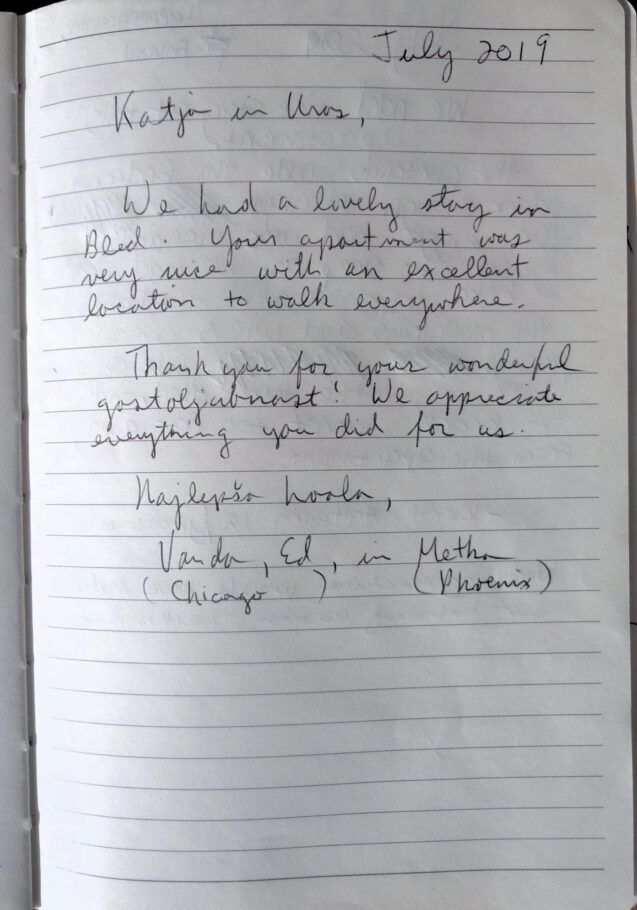 July 2019
Katja in Uros,
We had a lovely stay in
Bled. Your apartment was
very nice with an excellent
location to walk everywhere.
Thank you for your wonderful
gostoljubnost! We appreciate
everything you did for us.
Najlepša hvala,
Vanda, Ed, in Metka
(Chicago) (Phoenix)